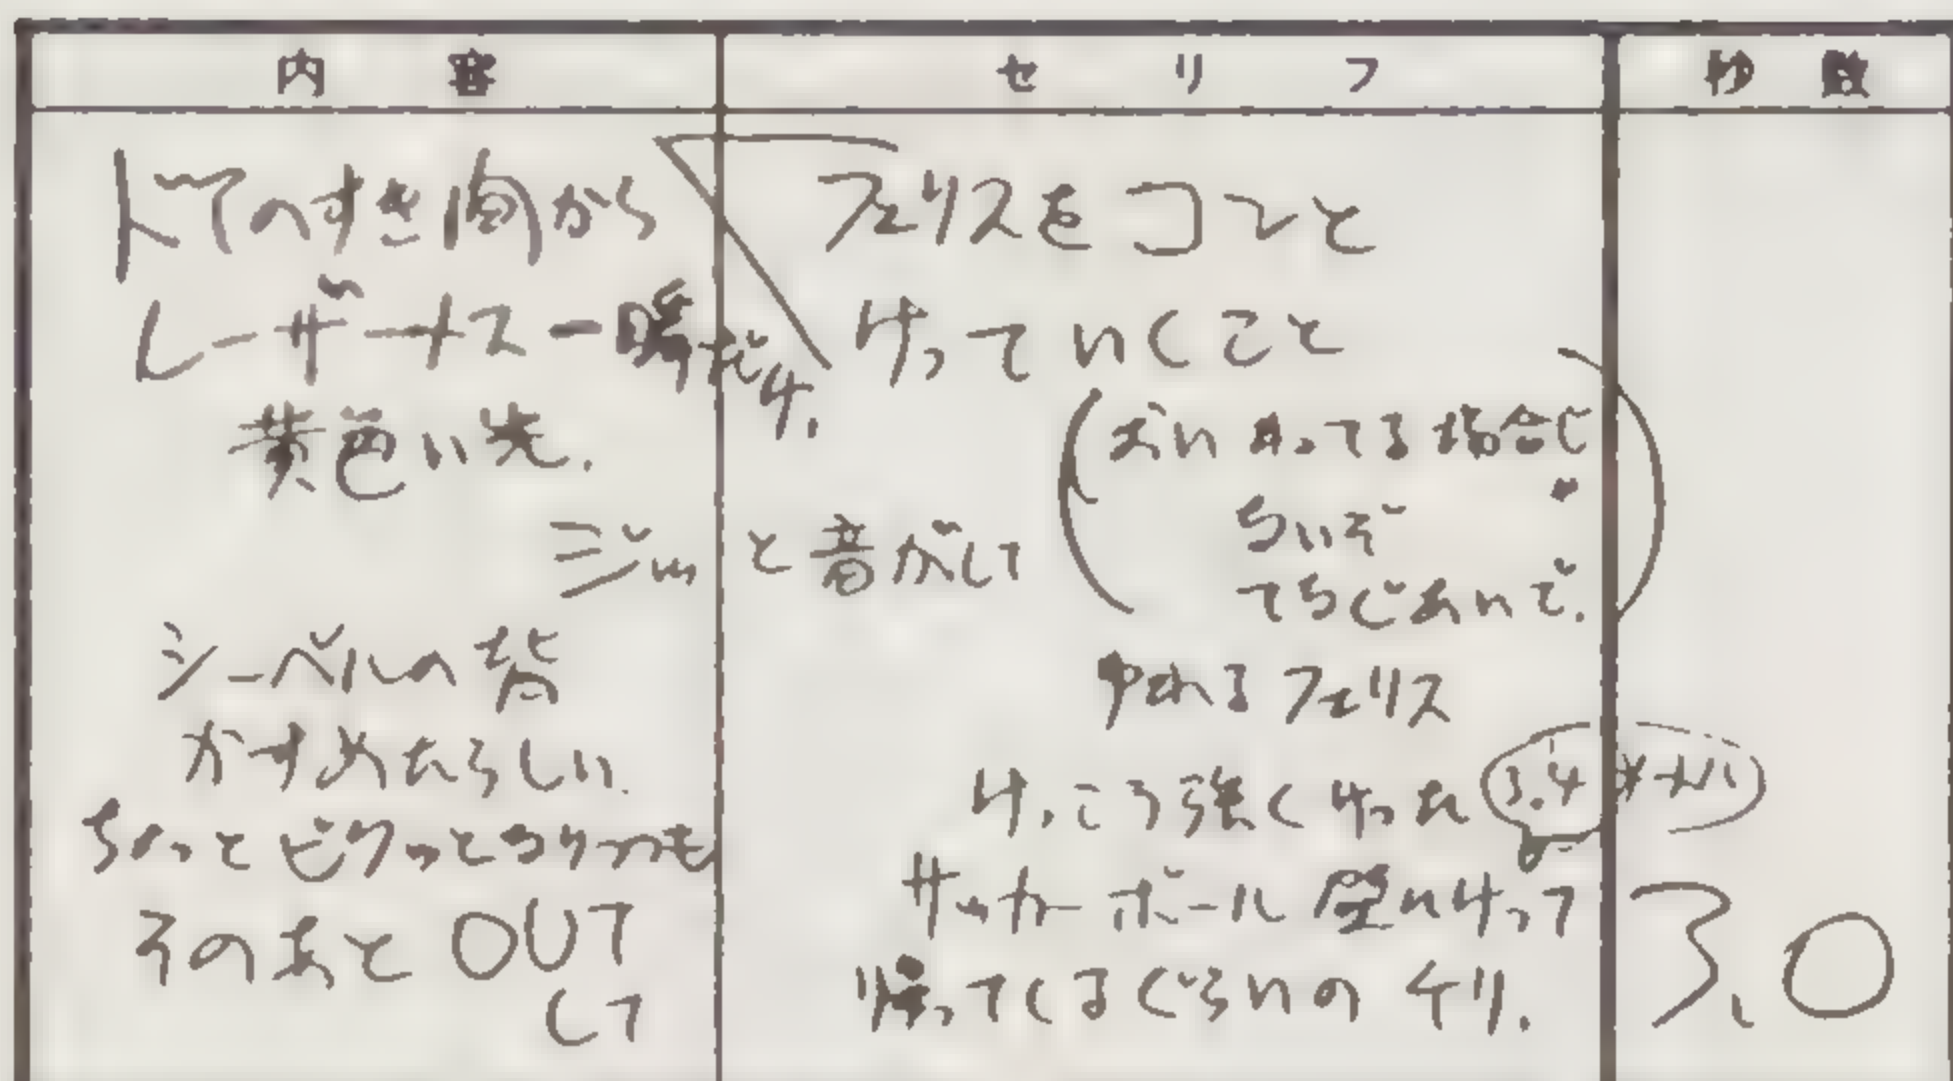 内容
セリフ
秒数
ドアのすき間から
レーザー ナス一瞬だけ.
黄色い光.
ジュッと音がして
シーベルの背
かすめたらしい.
ちょっとビクッとなりつつも
そのあとOUT
して
フェリスをコンと
けっていくこと
場合
ちいさ
フェリス
けっこう強くけった
3.4
サッカーボール壁にけって
帰ってくるぐらいのケリ.
3.0